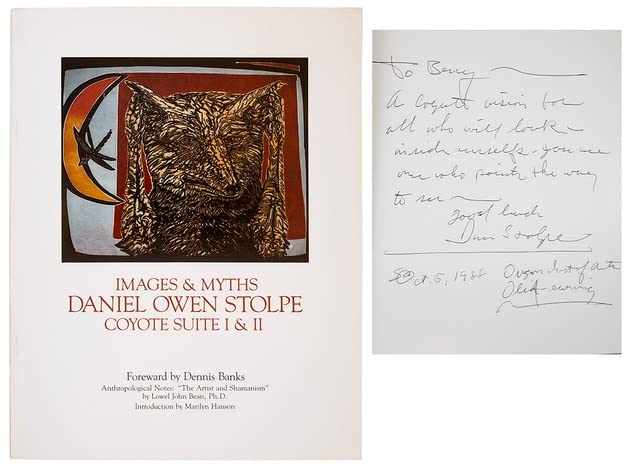 IMAGES & MYTHS
DANIEL OWEN STOLPE
COYOTE SUITE I & II
Foreward by Dennis Banks
Anthropological Notes: "The Artist and Shamanism"
by Lowel John Bean, Ph.D.
Introduction by Marilyn Hanson
To Berry
A Coyote vision for
all who will look
inside ourselves you are
one who points the way
to see
good luck
Dan Stolpe
Oct. 5, 1988